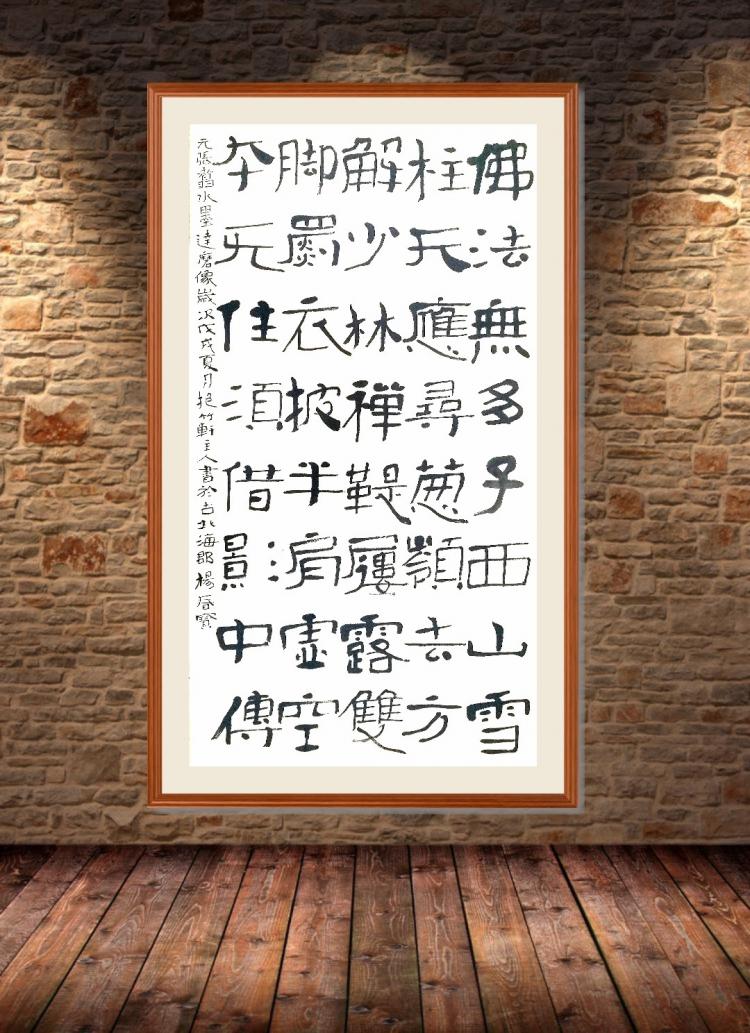 佛法無多子西山雪
柱天應尋葱嶺去方
解少林禪鞮屨露雙
脚罽衣披半肩虛空
本无住須借景中傳
元張翥水墨達磨像歲次戊戌夏月抱竹軒主人書於古北海郡楊春寶